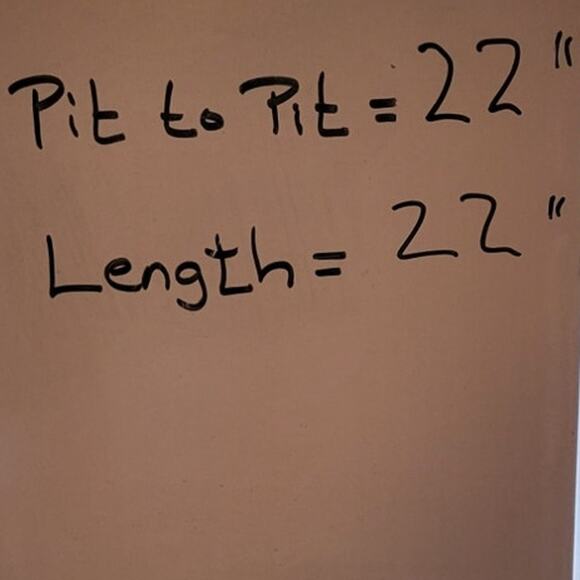 Pit to Pit = 22"
Length = 22"